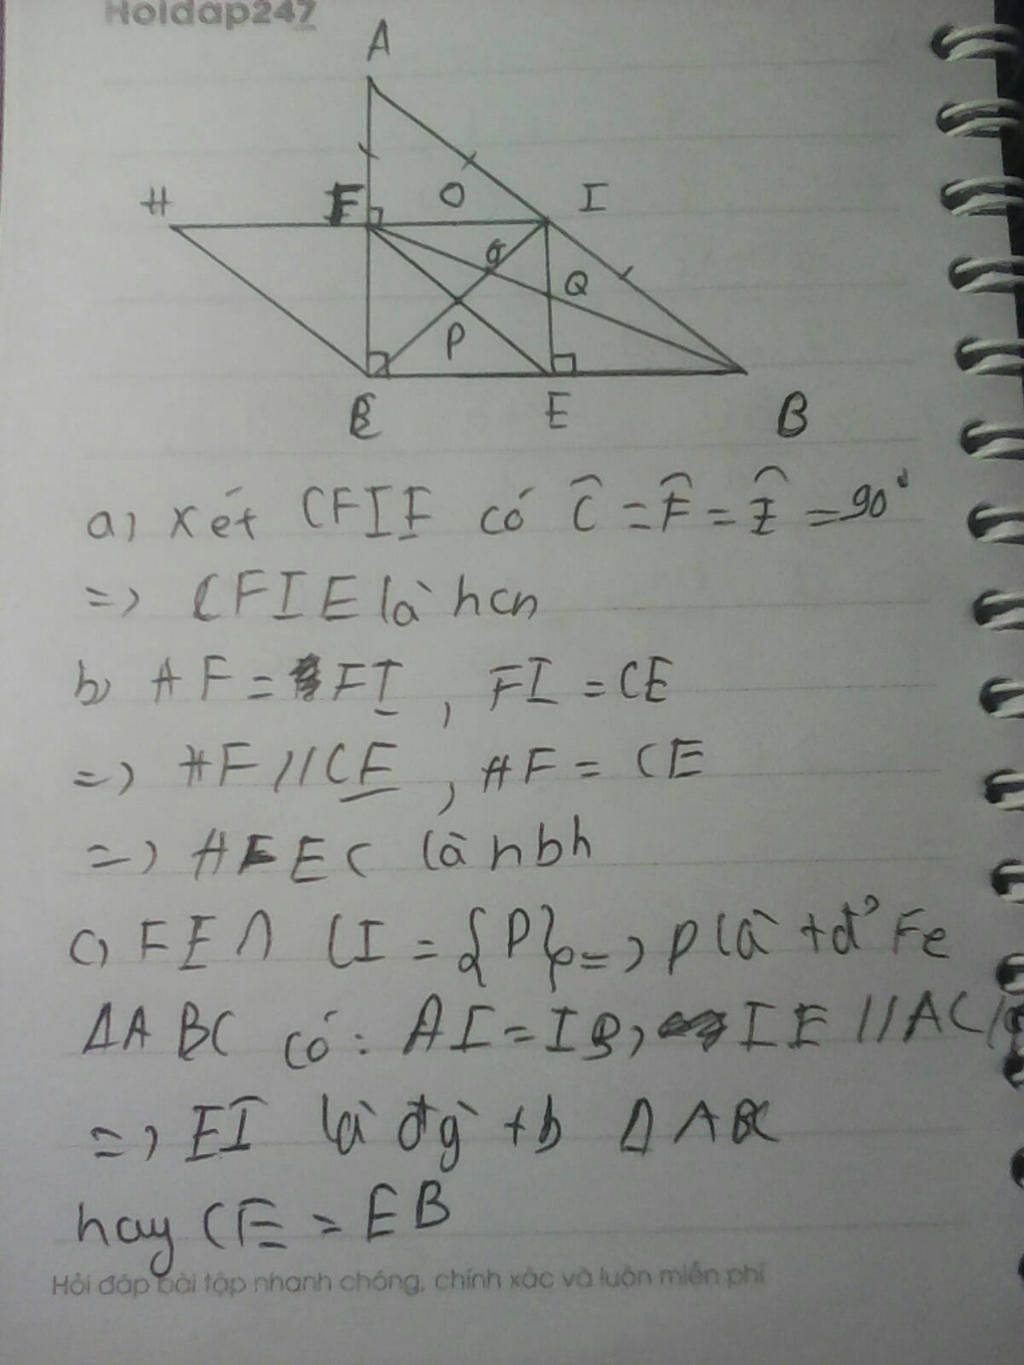 Hoidap247
A
H F O I
G Q
P
C E B
a) Xét CFIE có Ĉ = F̂ = Ê = 90°
=> CFIE là hcn
b) HF = FI, FI = CE
=> HF // CE, HF = CE
=> HFEC là hbh
c) FE ∩ CI = {P} => P là tđ' Fe
ΔABC có: AI = IB, IE // AC
=> EI là đg` tb ΔABC
hay CE = EB
Hỏi đáp bài tập nhanh chóng, chính xác và luôn miễn phí